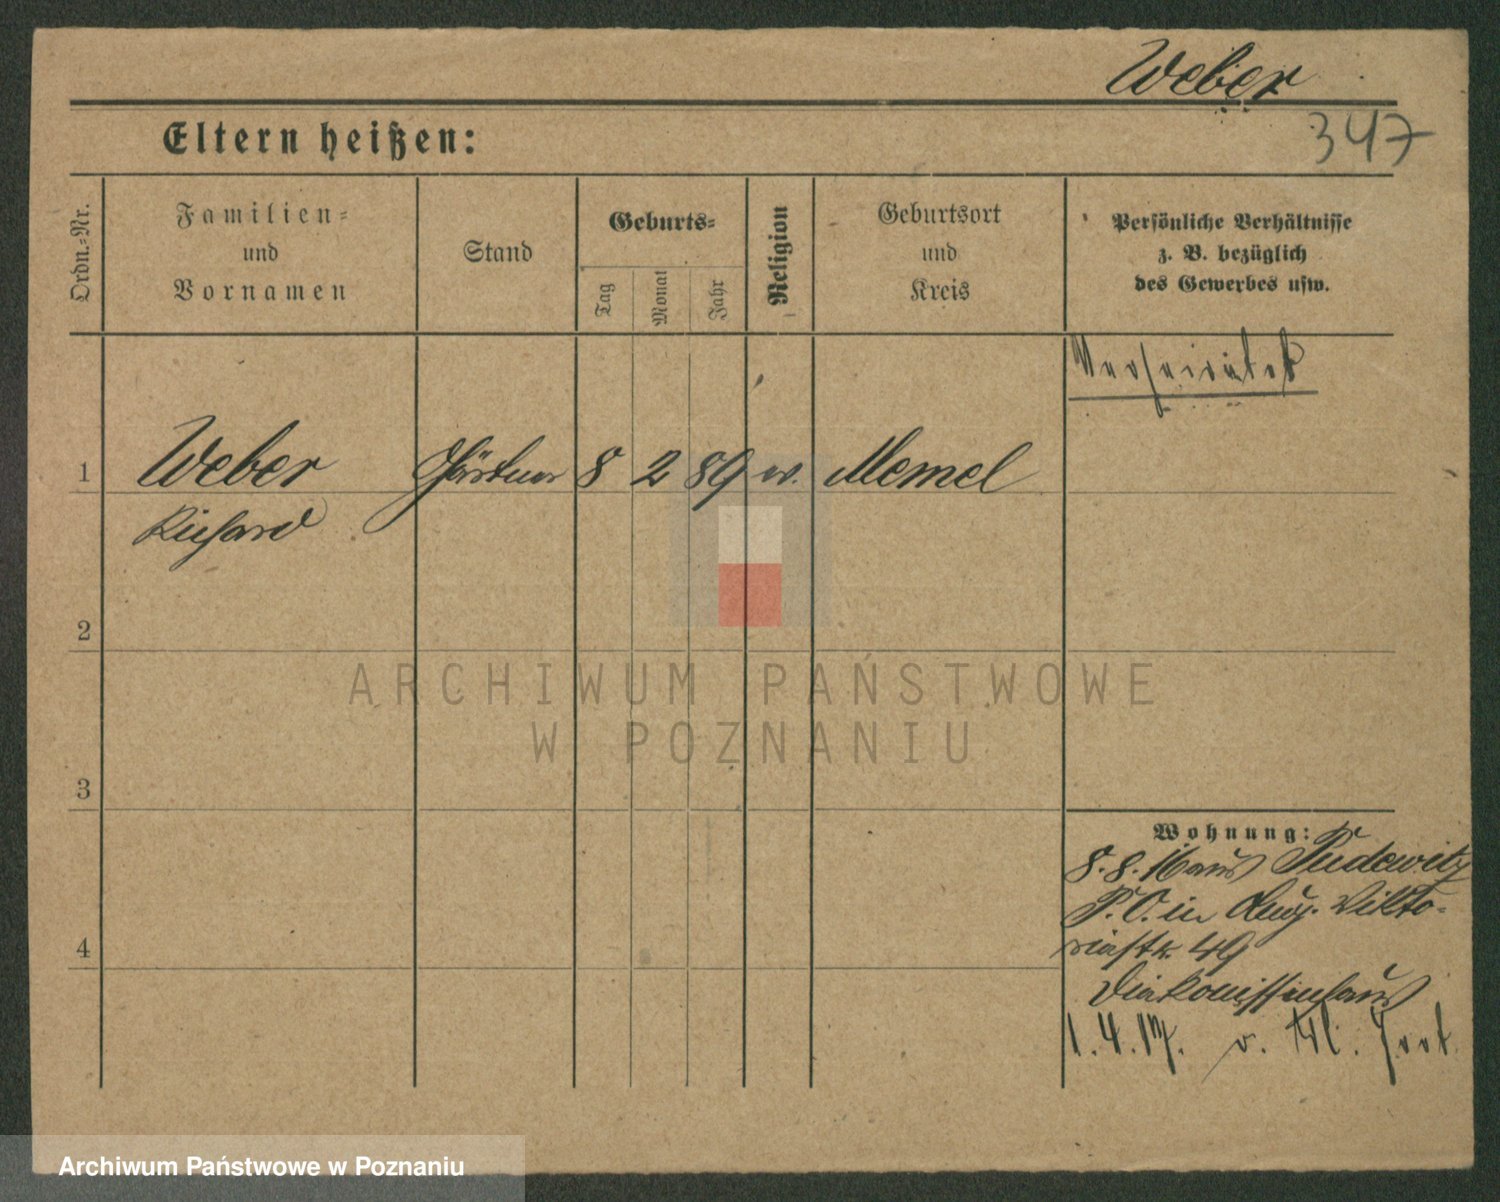 Weber
347
Eltern heißen:
Ordn.=Nr.
Familien=
und
Vornamen
Stand
Geburts=
Tag
Monat
Jahr
Religion
Geburtsort
und
Kreis
Persönliche Verhältnisse
z. B. bezüglich
des Gewerbes usw.
1
Weber
Gärtner
8
2
89
Memel
Richard
2
3
4
Wohnung:
8. 8. 16 aus Pudewitz
P. O. in Aug. Vikto-
riastr. 49
Diakonissenhaus
1. 4. 17. v.
ARCHIWUM PAŃSTWOWE
W POZNANIU
Archiwum Państwowe w Poznaniu